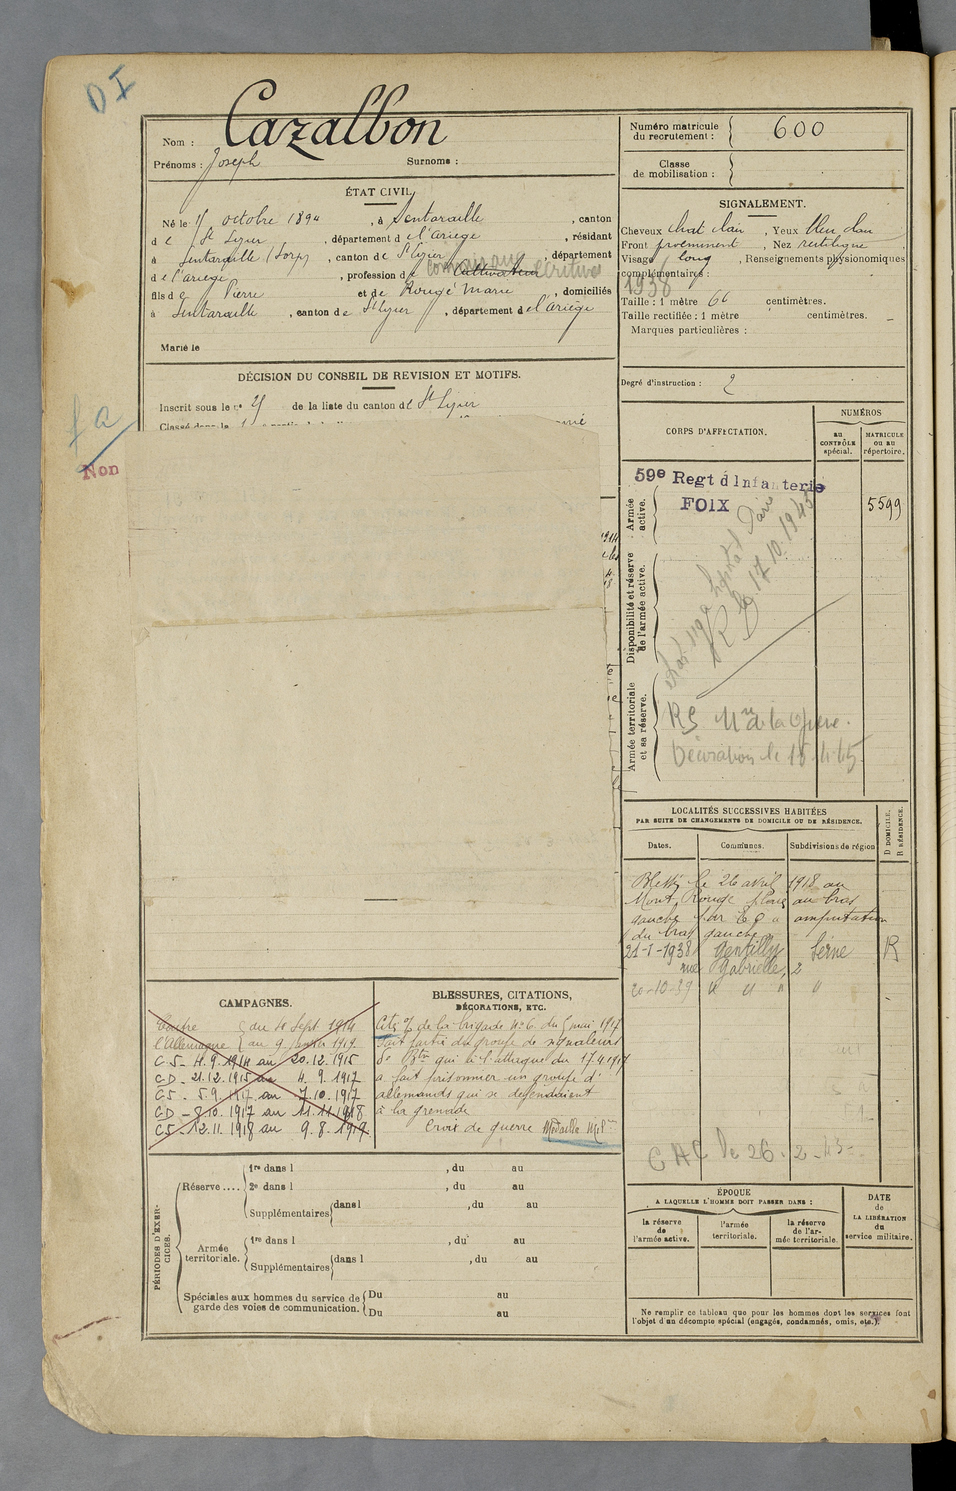 DI
Nom : Cazalbon
Prénoms : Joseph Surnoms :
ÉTAT CIVIL
Né le octobre 1894, à Sentaraille, canton
de St Lizier, département de l'Ariège, résidant
à Sentaraille (Lorp), canton de St Lizier, département
de l'ariège, profession de Cultivateur
fils de Pierre et de Rougé Marie, domiciliés
à Sentaraille, canton de St Lizier, département de l'ariège
Marié le
DÉCISION DU CONSEIL DE REVISION ET MOTIFS.
Inscrit sous le n° de la liste du canton de St Lizier
fa
Non
Numéro matricule du recrutement : 600
Classe de mobilisation :
SIGNALEMENT.
Cheveux chat clair, Yeux bleu clair
Front proéminent, Nez rectiligne
Visage long, Renseignements physionomiques
complémentaires :
1938
Taille : 1 mètre 66 centimètres.
Taille rectifiée : 1 mètre centimètres.
Marques particulières :
Degré d'instruction : 2
CORPS D'AFFECTATION.
NUMÉROS
au CONTRÔLE spécial.
MATRICULE OU AU répertoire.
Armée active.
59e Regt d'Infanterie
FOIX
5599
Disponibilité et réserve de l'armée active.
R le 17.10.1945
Armée territoriale et sa réserve.
Décoration le 18.4.45
LOCALITÉS SUCCESSIVES HABITÉES
PAR SUITE DE CHANGEMENTS DE DOMICILE OU DE RÉSIDENCE.
Dates. Communes. Subdivisions de région
D DOMICILE.
R RÉSIDENCE.
Blessé le 26 avril 1918 au
Mont Rouge plaie au bras
gauche par E.O. amputation
du bras gauche
21-1-1938 Gentilly Seine R
rue Gabrielle, 2
20-10-39 " " " "
CAC de 26.2-43-
CAMPAGNES.
Contre du 4 Sept 1914
l'Allemagne au 9 1919
CS - 4.9.1914 au 20.12.1915
CD - 21.12.1915 au 4.9.1917
CS - 5.9.1917 au 7.10.1917
CD - 8.10.1917 au 11.11.1918
CS - 12.11.1918 au 9.8.1919
BLESSURES, CITATIONS,
DÉCORATIONS, ETC.
Cité % de la brigade N° 6 du 5 mai 1917
Fait partie du groupe de signaleurs
de Btn qui à l'attaque du 17.4.1917
a fait prisonnier un groupe d'
allemands qui se défendaient
à la grenade
Croix de guerre Médaille Milre
PÉRIODES D'EXERCICES.
Réserve....
1re dans l , du au
2e dans l , du au
Supplémentaires dans l , du au
Armée territoriale.
1re dans l , du au
Supplémentaires dans l , du au
Spéciales aux hommes du service de garde des voies de communication.
Du au
Du au
ÉPOQUE
A LAQUELLE L'HOMME DOIT PASSER DANS :
la réserve de l'armée active.
l'armée territoriale.
la réserve de l'armée territoriale.
DATE de LA LIBÉRATION du service militaire.
Ne remplir ce tableau que pour les hommes dont les services font
l'objet d'un décompte spécial (engagés, condamnés, omis, etc.).